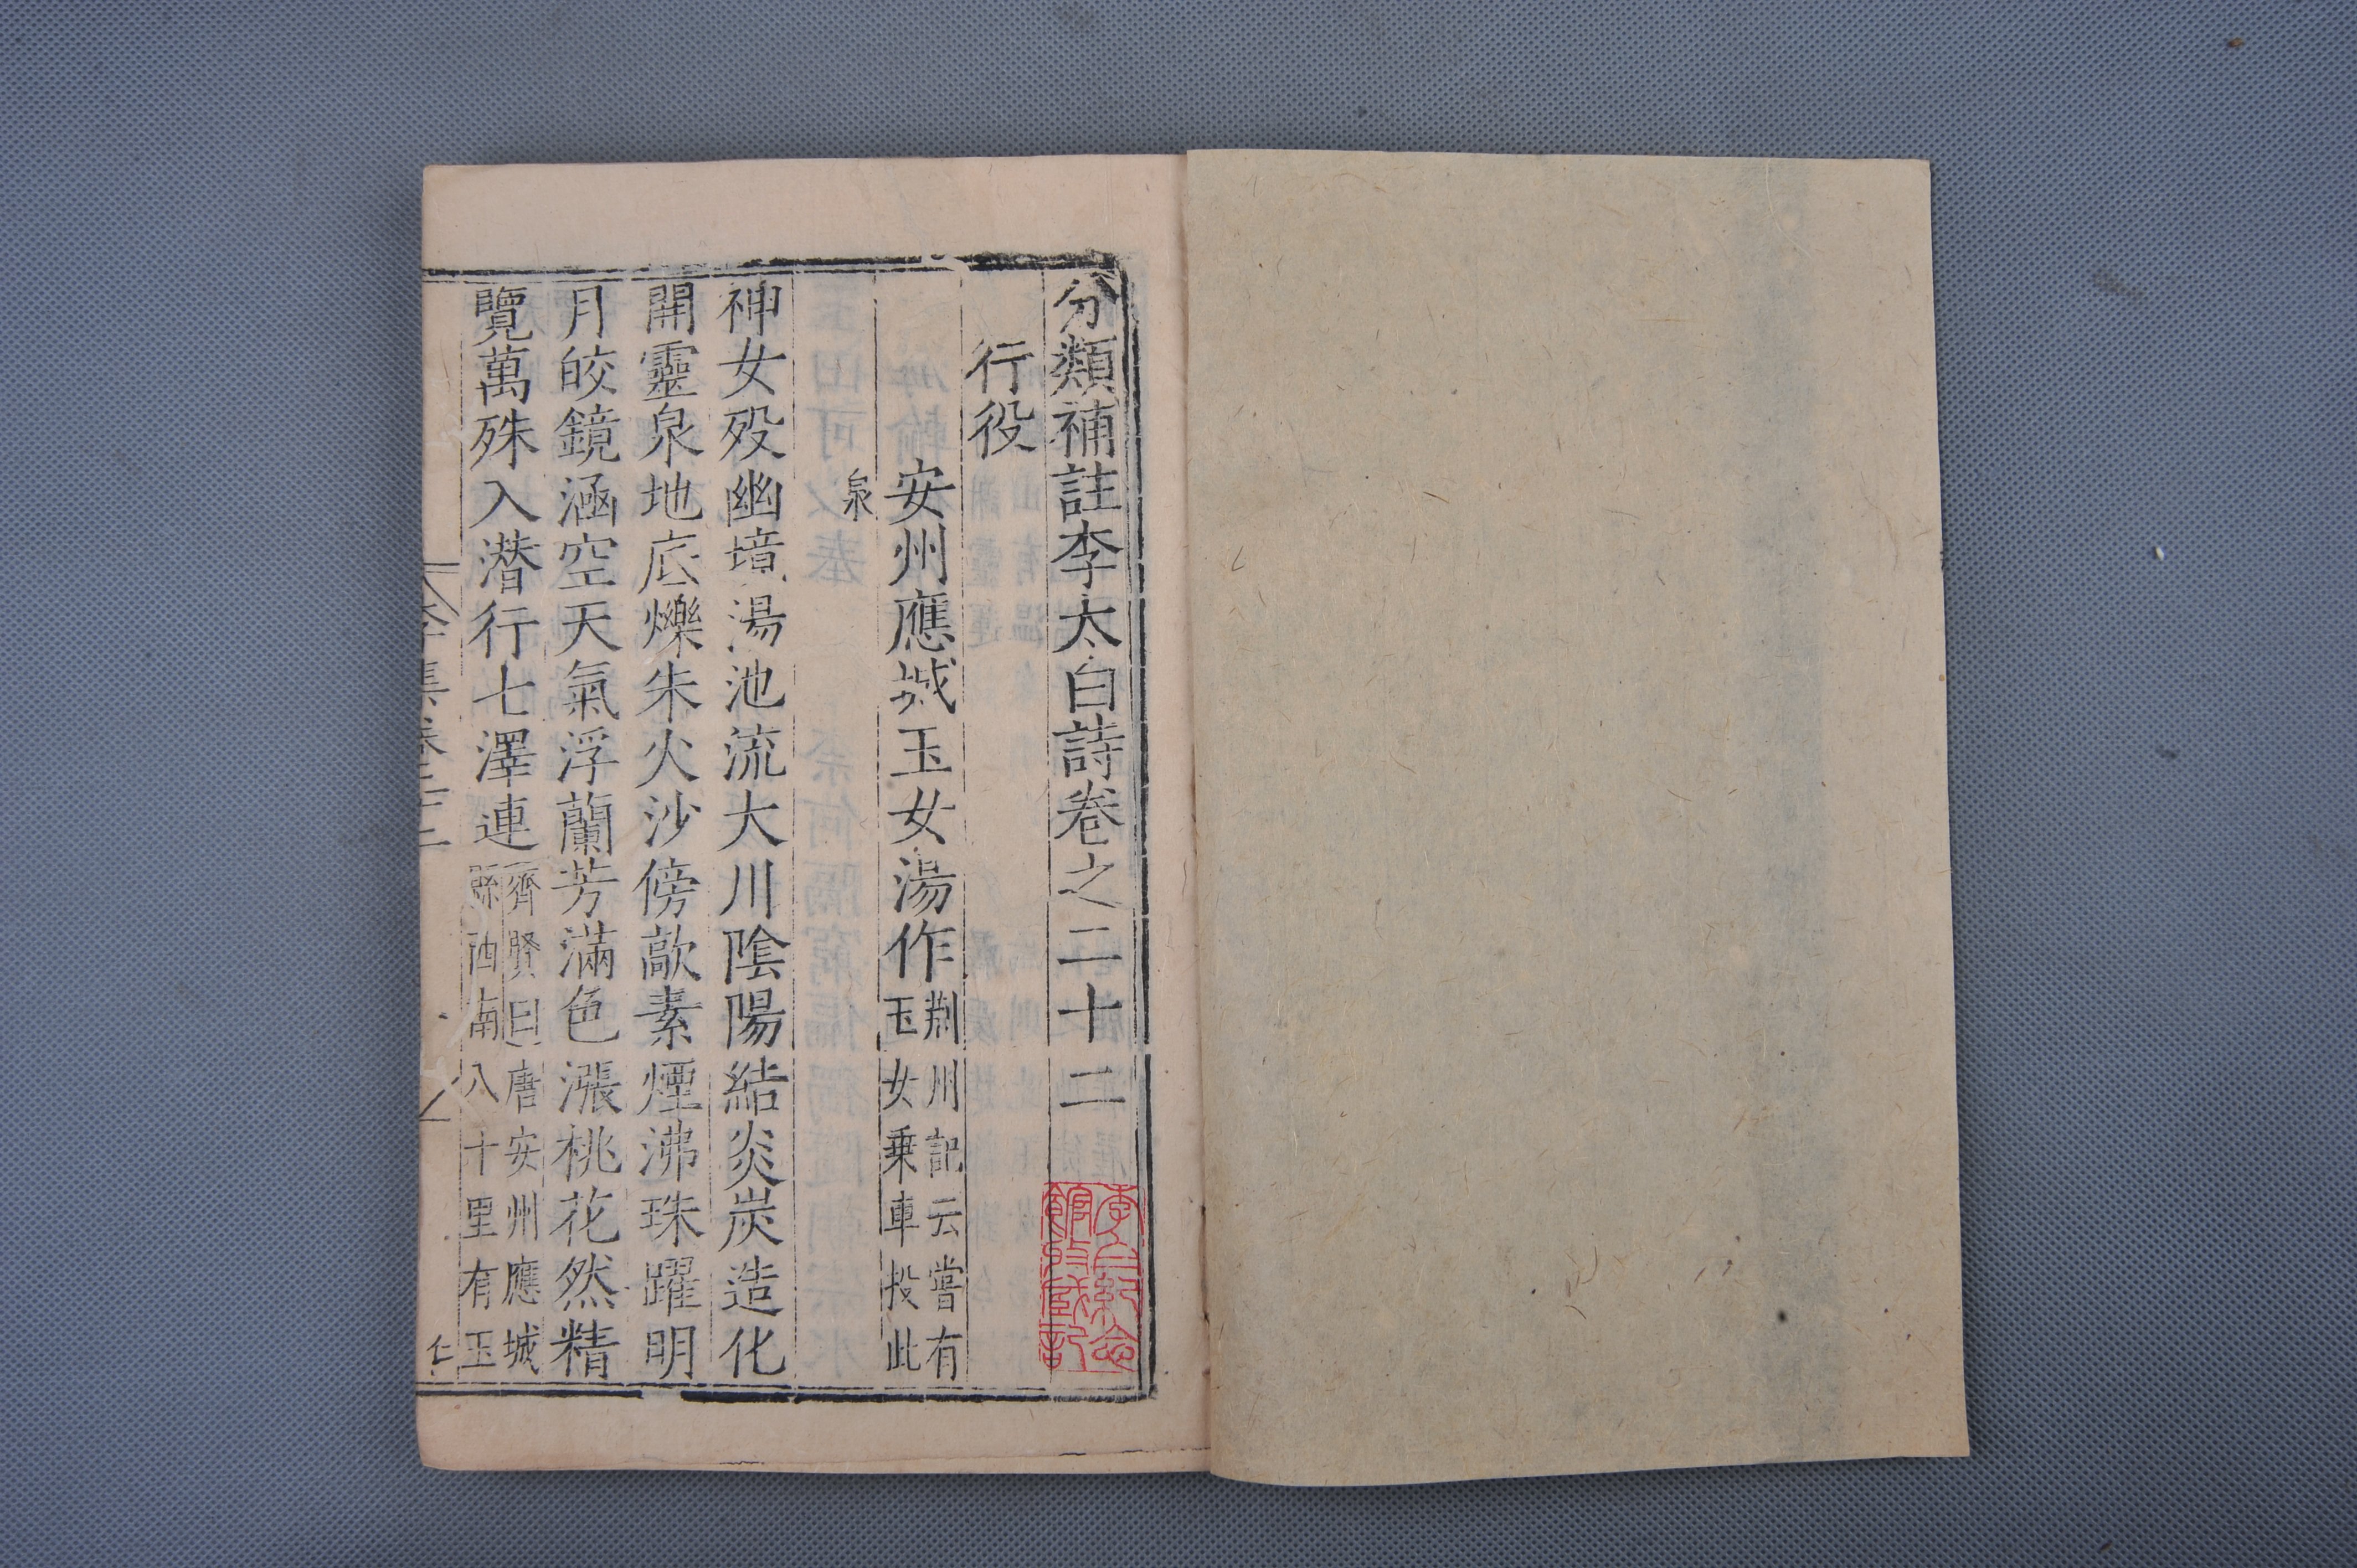 分類補註李太白詩卷之二十二
行役
安州應城玉女湯作
荆州記云嘗有
玉女乗車投此
泉
神女殁幽境湯池流大川陰陽結炎炭造化
開靈泉地底爍朱火沙傍歊素煙沸珠躍明
月皎鏡涵空天氣浮蘭芳滿色漲桃花然精
覽萬殊入潜行七澤連
齊賢曰唐安州應城
縣西南八十里有玉
李集卷二十二
仁
李白紀念
館所藏記